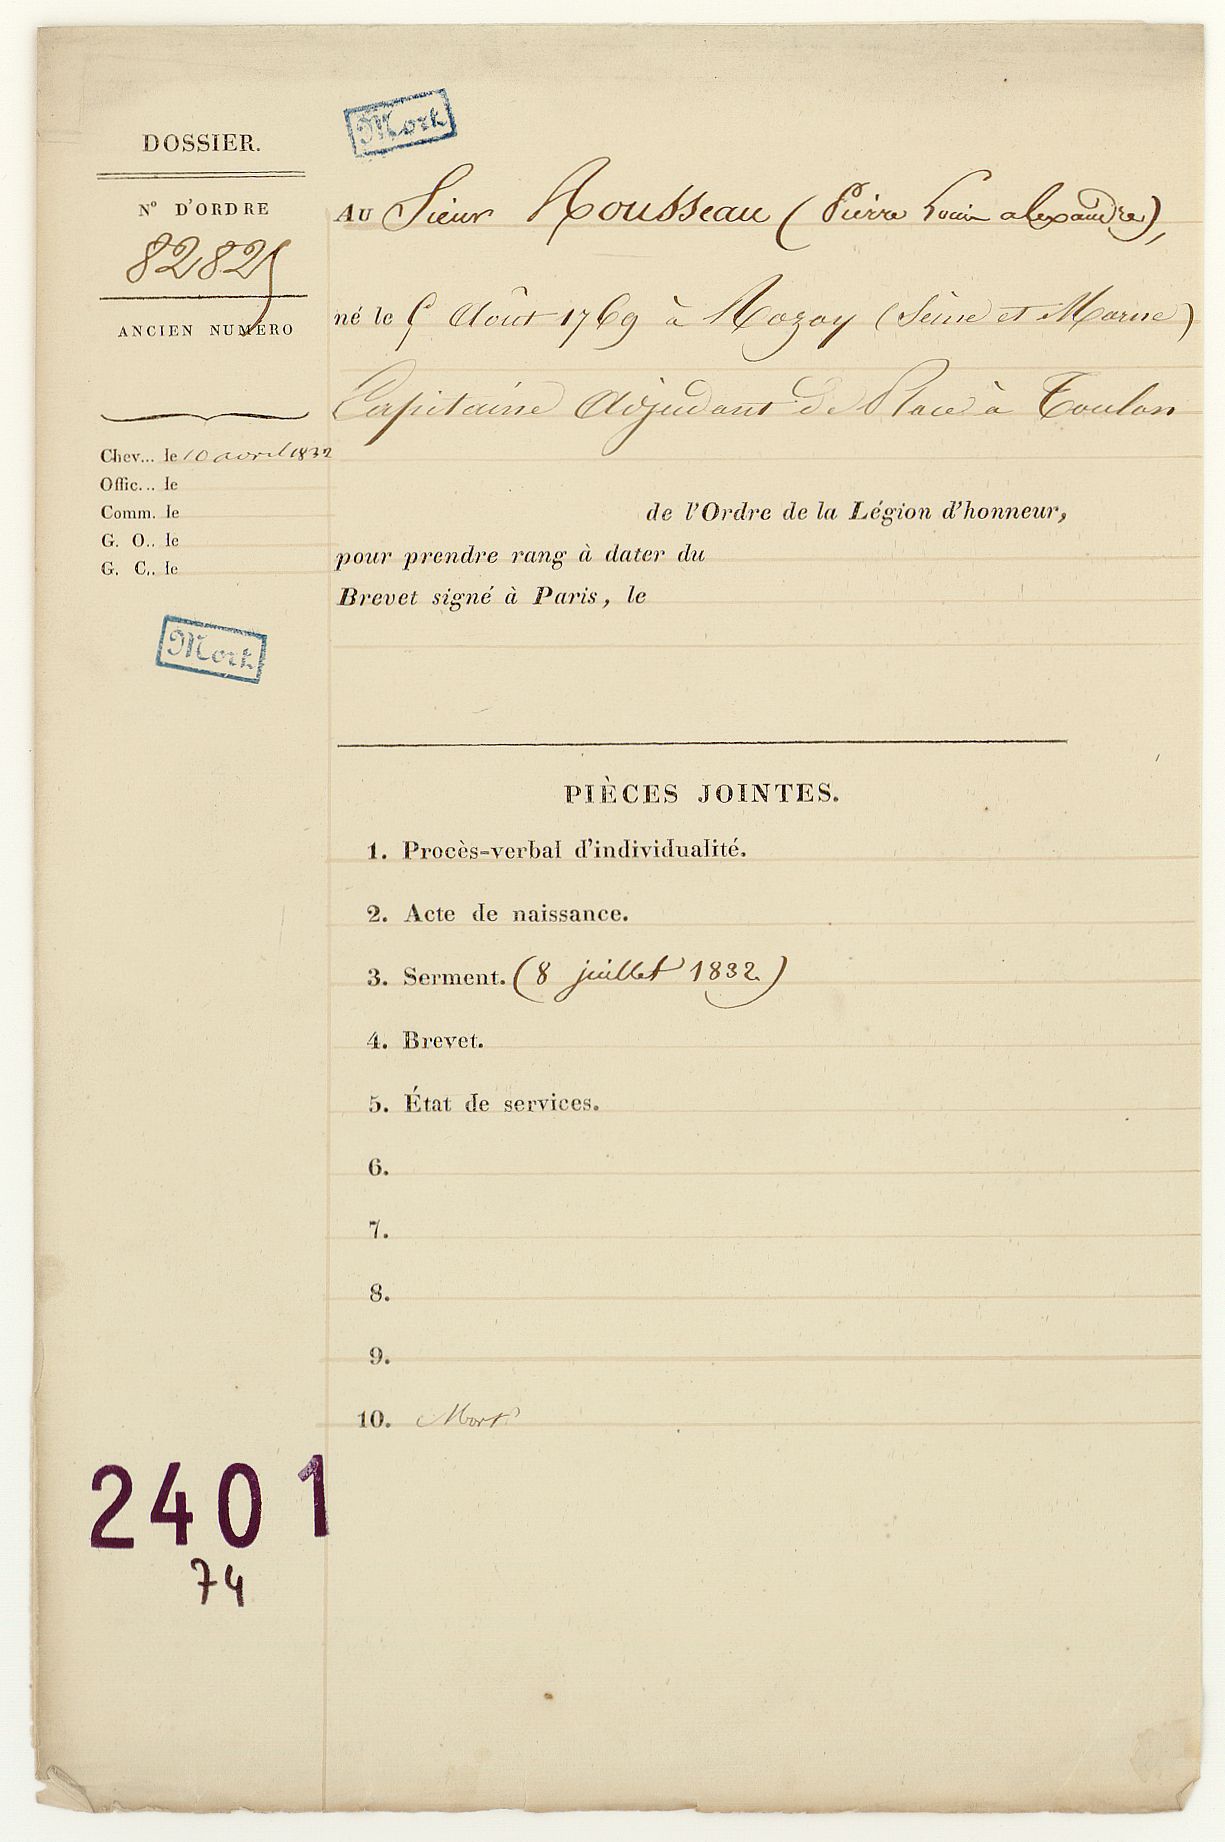 Mort
DOSSIER.
N° D'ORDRE
82825
ANCIEN NUMÉRO
Chev... le 10 avril 1832
Offic... le
Comm. le
G. O.. le
G. C.. le
Mort
AU Sieur Rousseau (Pierre Louis alexandre),
né le 5 Août 1769 à Rozoy (Seine et Marne)
Capitaine Adjudant de Place à Toulon
de l'Ordre de la Légion d'honneur,
pour prendre rang à dater du
Brevet signé à Paris, le
PIÈCES JOINTES.
1. Procès-verbal d'individualité.
2. Acte de naissance.
3. Serment. (8 juillet 1832)
4. Brevet.
5. État de services.
6.
7.
8.
9.
10. Mort
2401
74